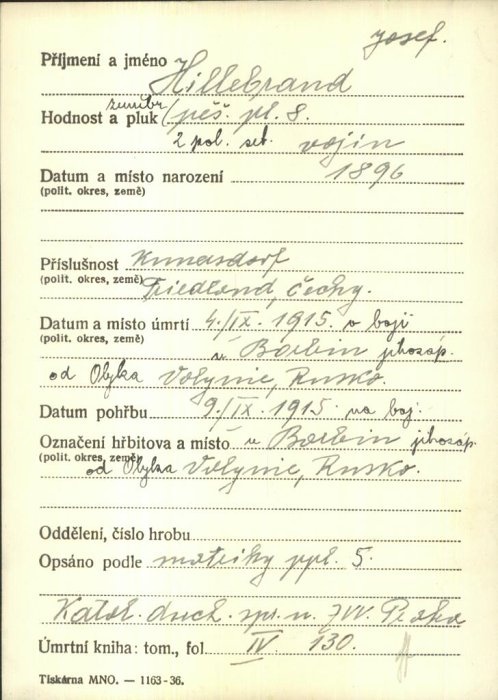 Josef.
Příjmení a jméno Hillebrand
zeměbr.
Hodnost a pluk pěš. pl. 8.
2 pol. set. vojín
Datum a místo narození 1896
(polit. okres, země)
Příslušnost Kunersdorf
(polit. okres, země) Friedland, Čechy.
Datum a místo úmrtí 4./IX. 1915. v boji
(polit. okres, země) u Borbin jihozáp.
od Olyka Volynie, Rusko.
Datum pohřbu 9./IX. 1915. na boj.
Označení hřbitova a místo u Borbin jihozáp.
(polit. okres, země) od Olyka Volynie, Rusko.
Oddělení, číslo hrobu
Opsáno podle matriky ppl. 5.
Katol. duch. spr. u ZVV. Praha
Úmrtní kniha: tom., fol IV. 130.
Tiskárna MNO. — 1163-36.